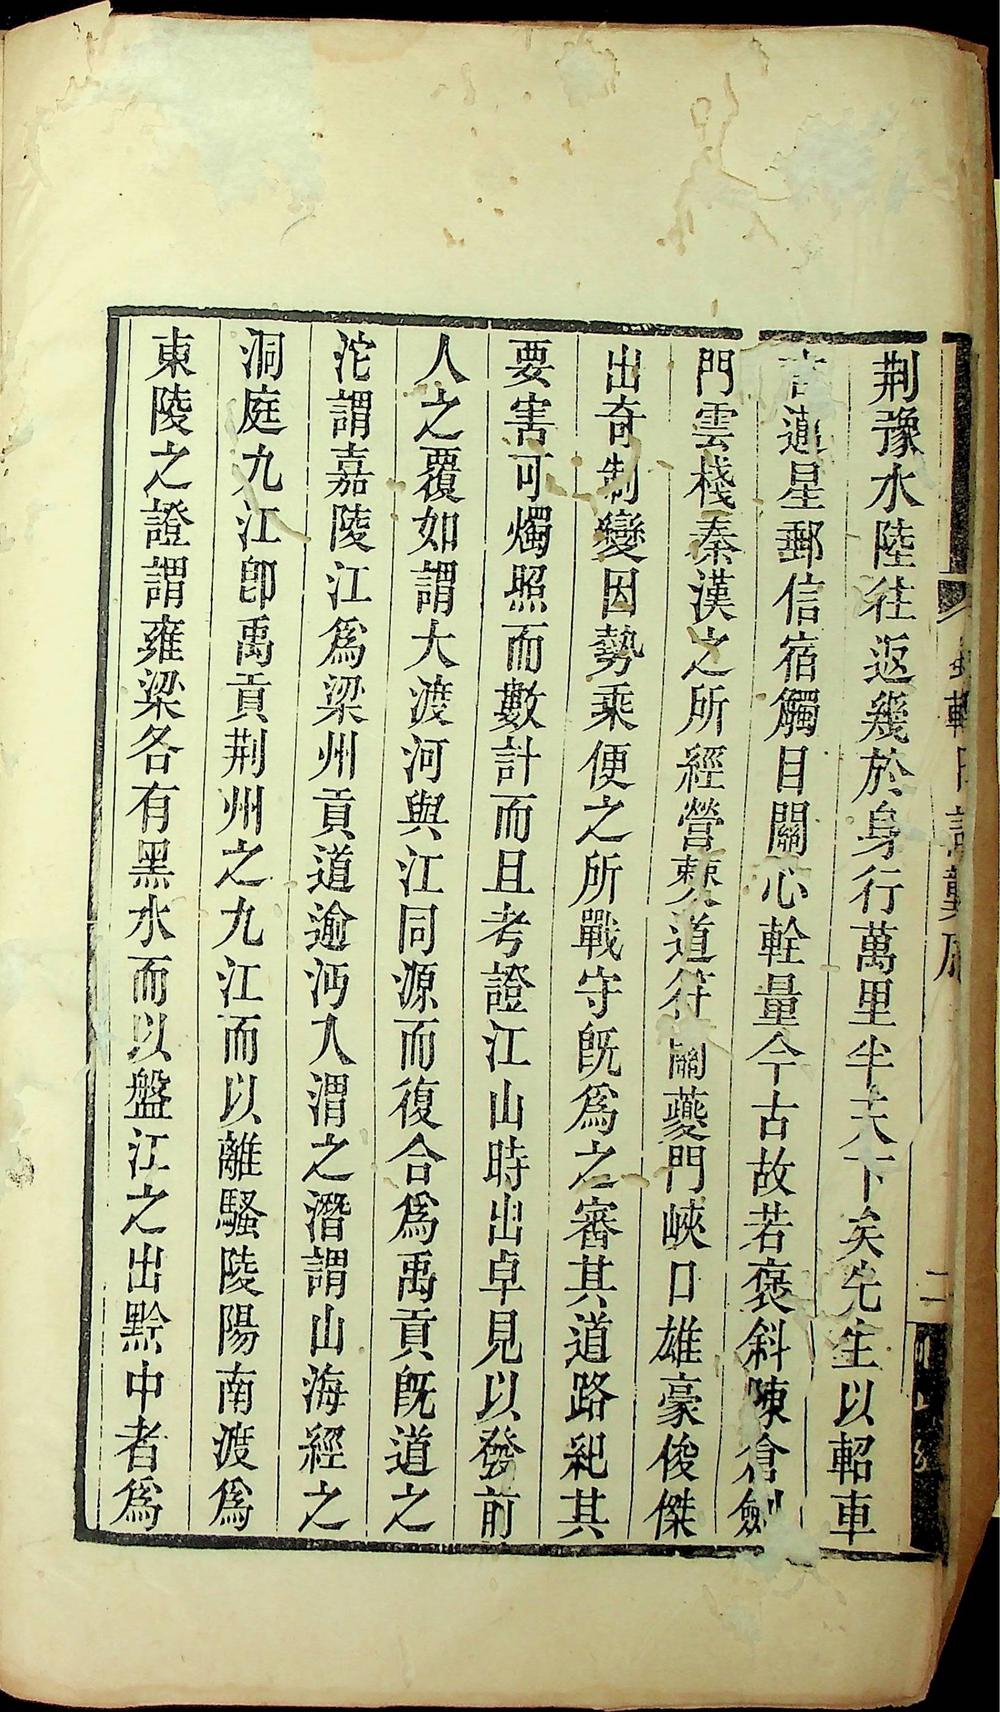 荆豫水陸往返幾於身行萬里半天下矣先生以軺車
遄星郵信宿觸目關心輇量今古故若褒斜陳倉劍
門雲棧秦漢之所經營棘道符關夔門峽口雄豪俊傑
出奇制變因勢乘便之所戰守既爲之審其道路紀其
要害可燭照而數計而且考證江山時出卓見以發前
人之覆如謂大渡河與江同源而復合爲禹貢既道之
沱謂嘉陵江爲梁州貢道逾沔入渭之潛謂山海經之
洞庭九江卽禹貢荆州之九江而以離騷陵陽南渡爲
東陵之證謂雍梁各有黑水而以盤江之出黔中者爲
二